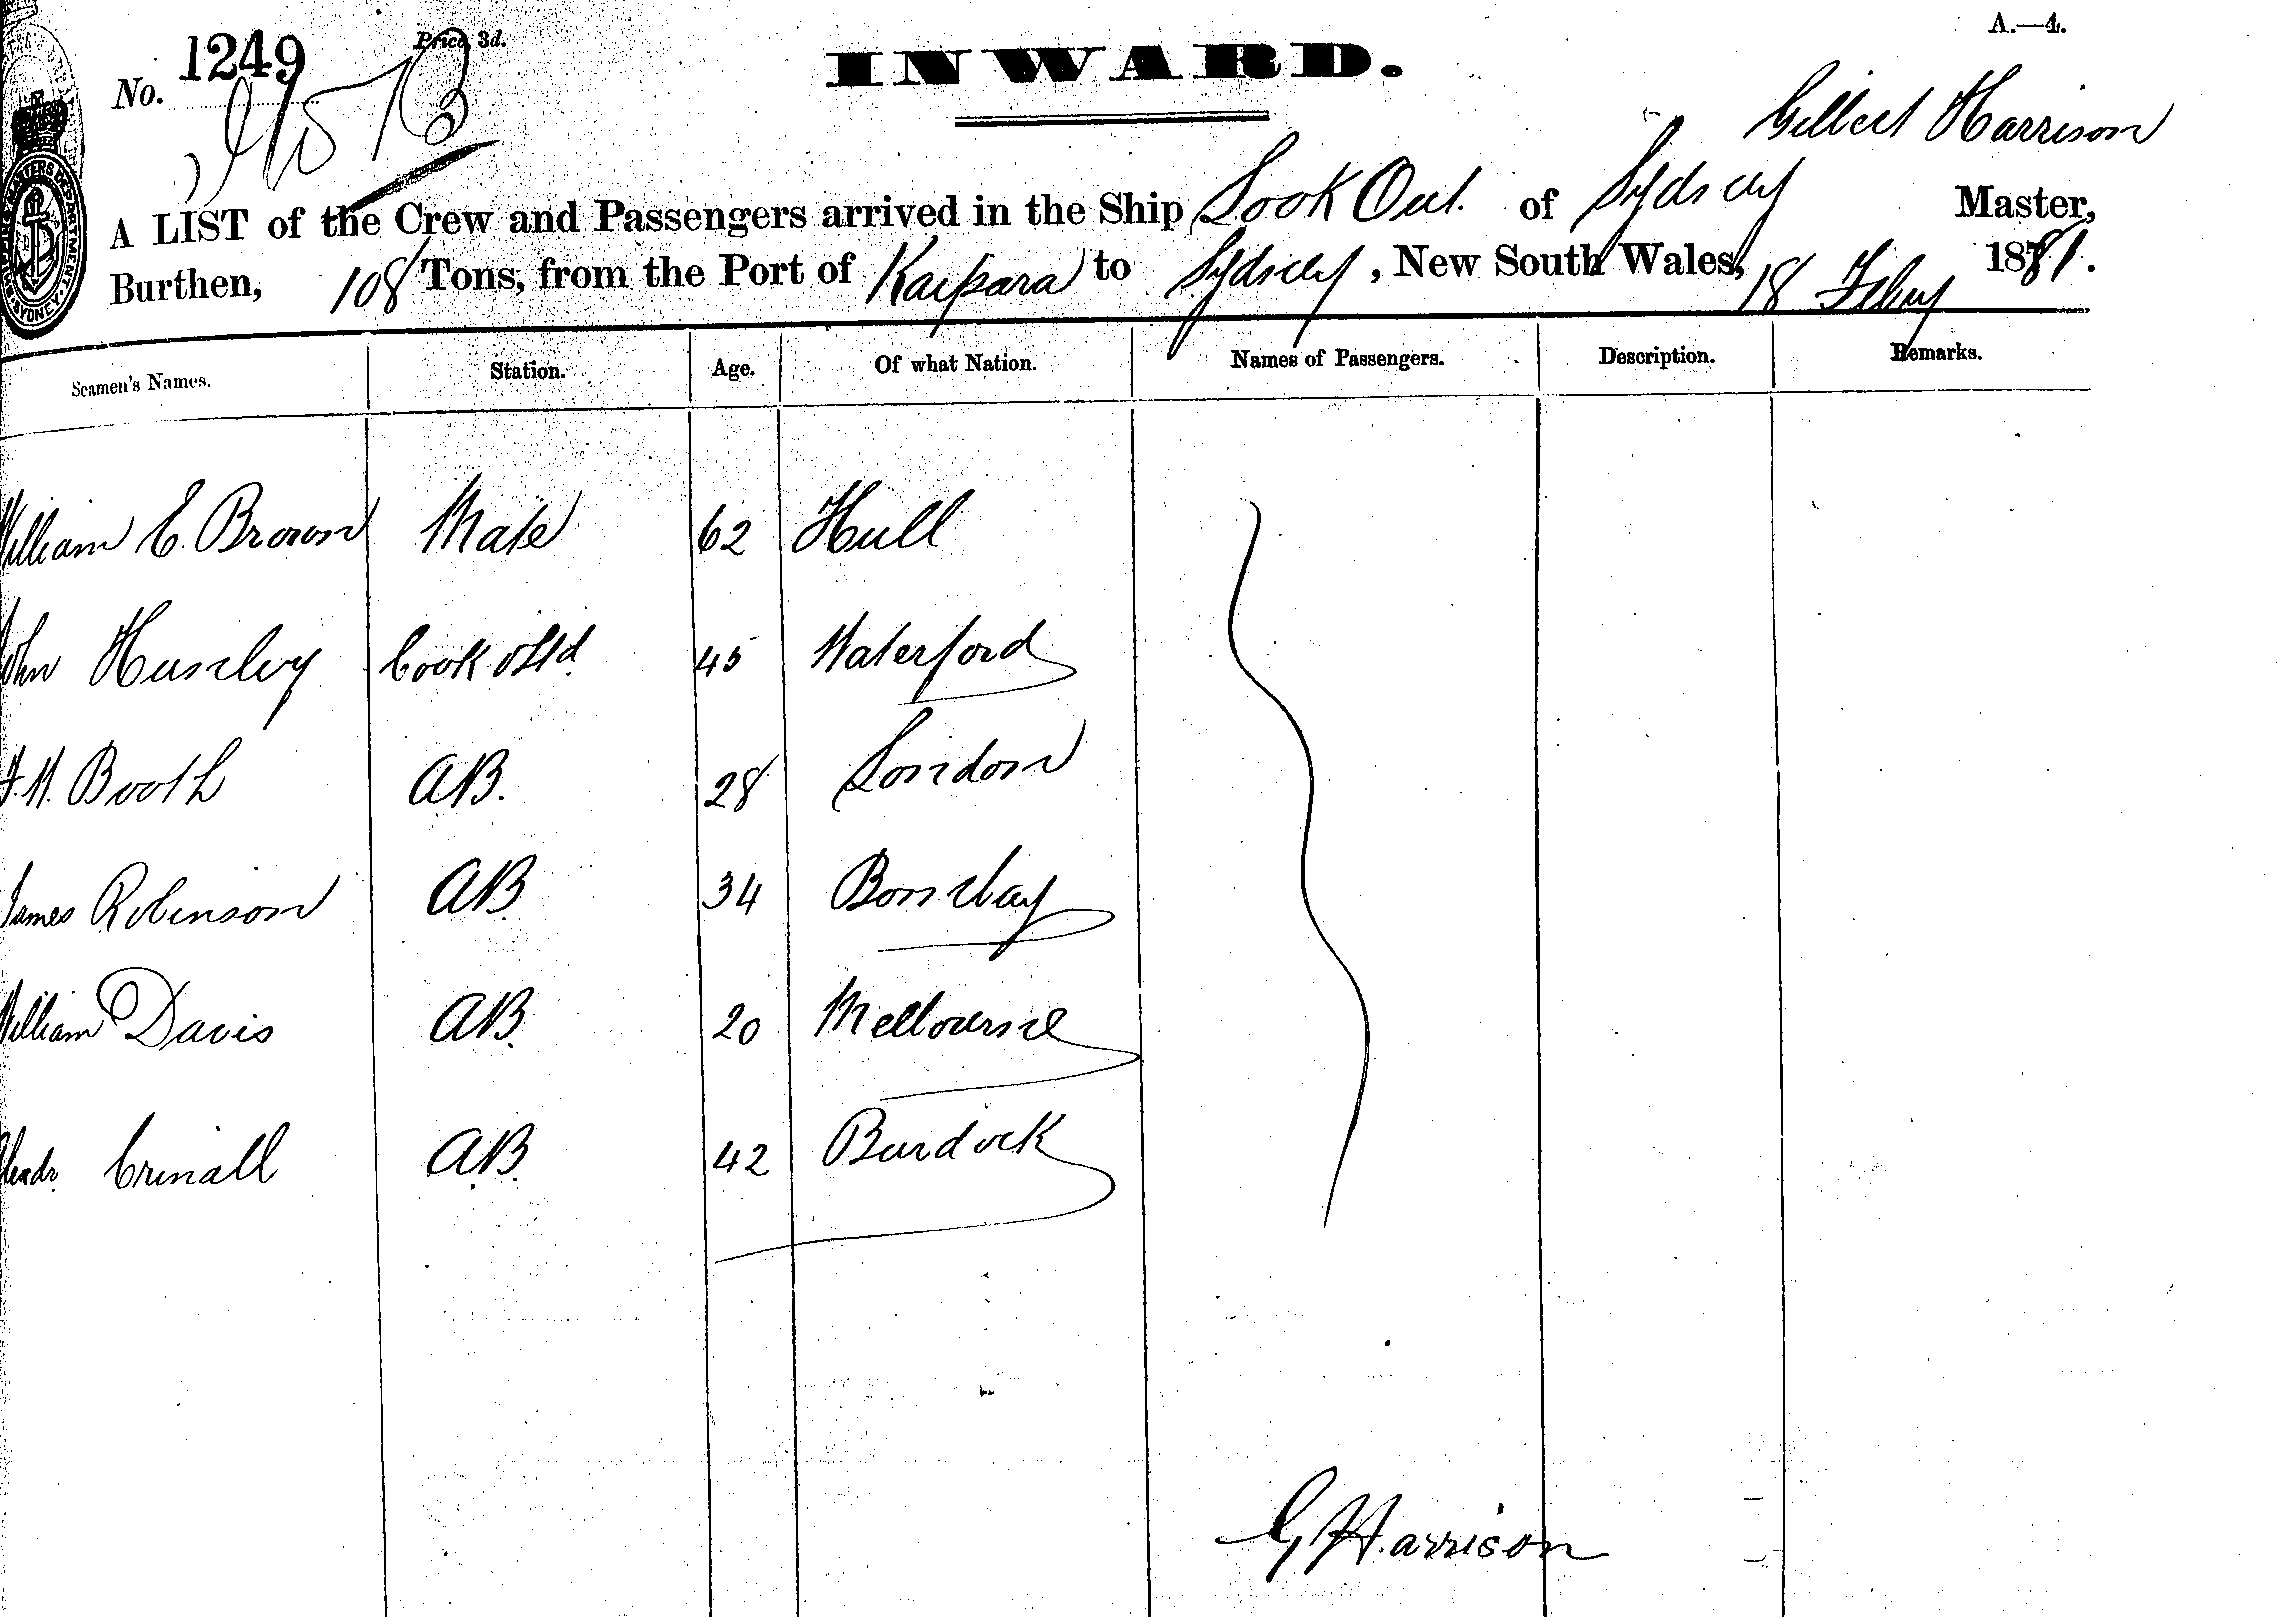 A.—4.
Price 3d.
No. 1249
INWARD.
Gilbert Harrison
A LIST of the Crew and Passengers arrived in the Ship Look Out. of Sydney Master,
Burthen, 108 Tons, from the Port of Kaipara to Sydney, New South Wales, 18 Feby 1881.
Seamen's Names. Station. Age. Of what Nation. Names of Passengers. Description. Remarks.
William C. Brown Mate 62 Hull
John Cook & Std. 45 Waterford
Booth AB. 28 London
James Robinson AB 34 Bombay
William Davis AB. 20 Melbourne
AB. 42 Burdock
G Harrison